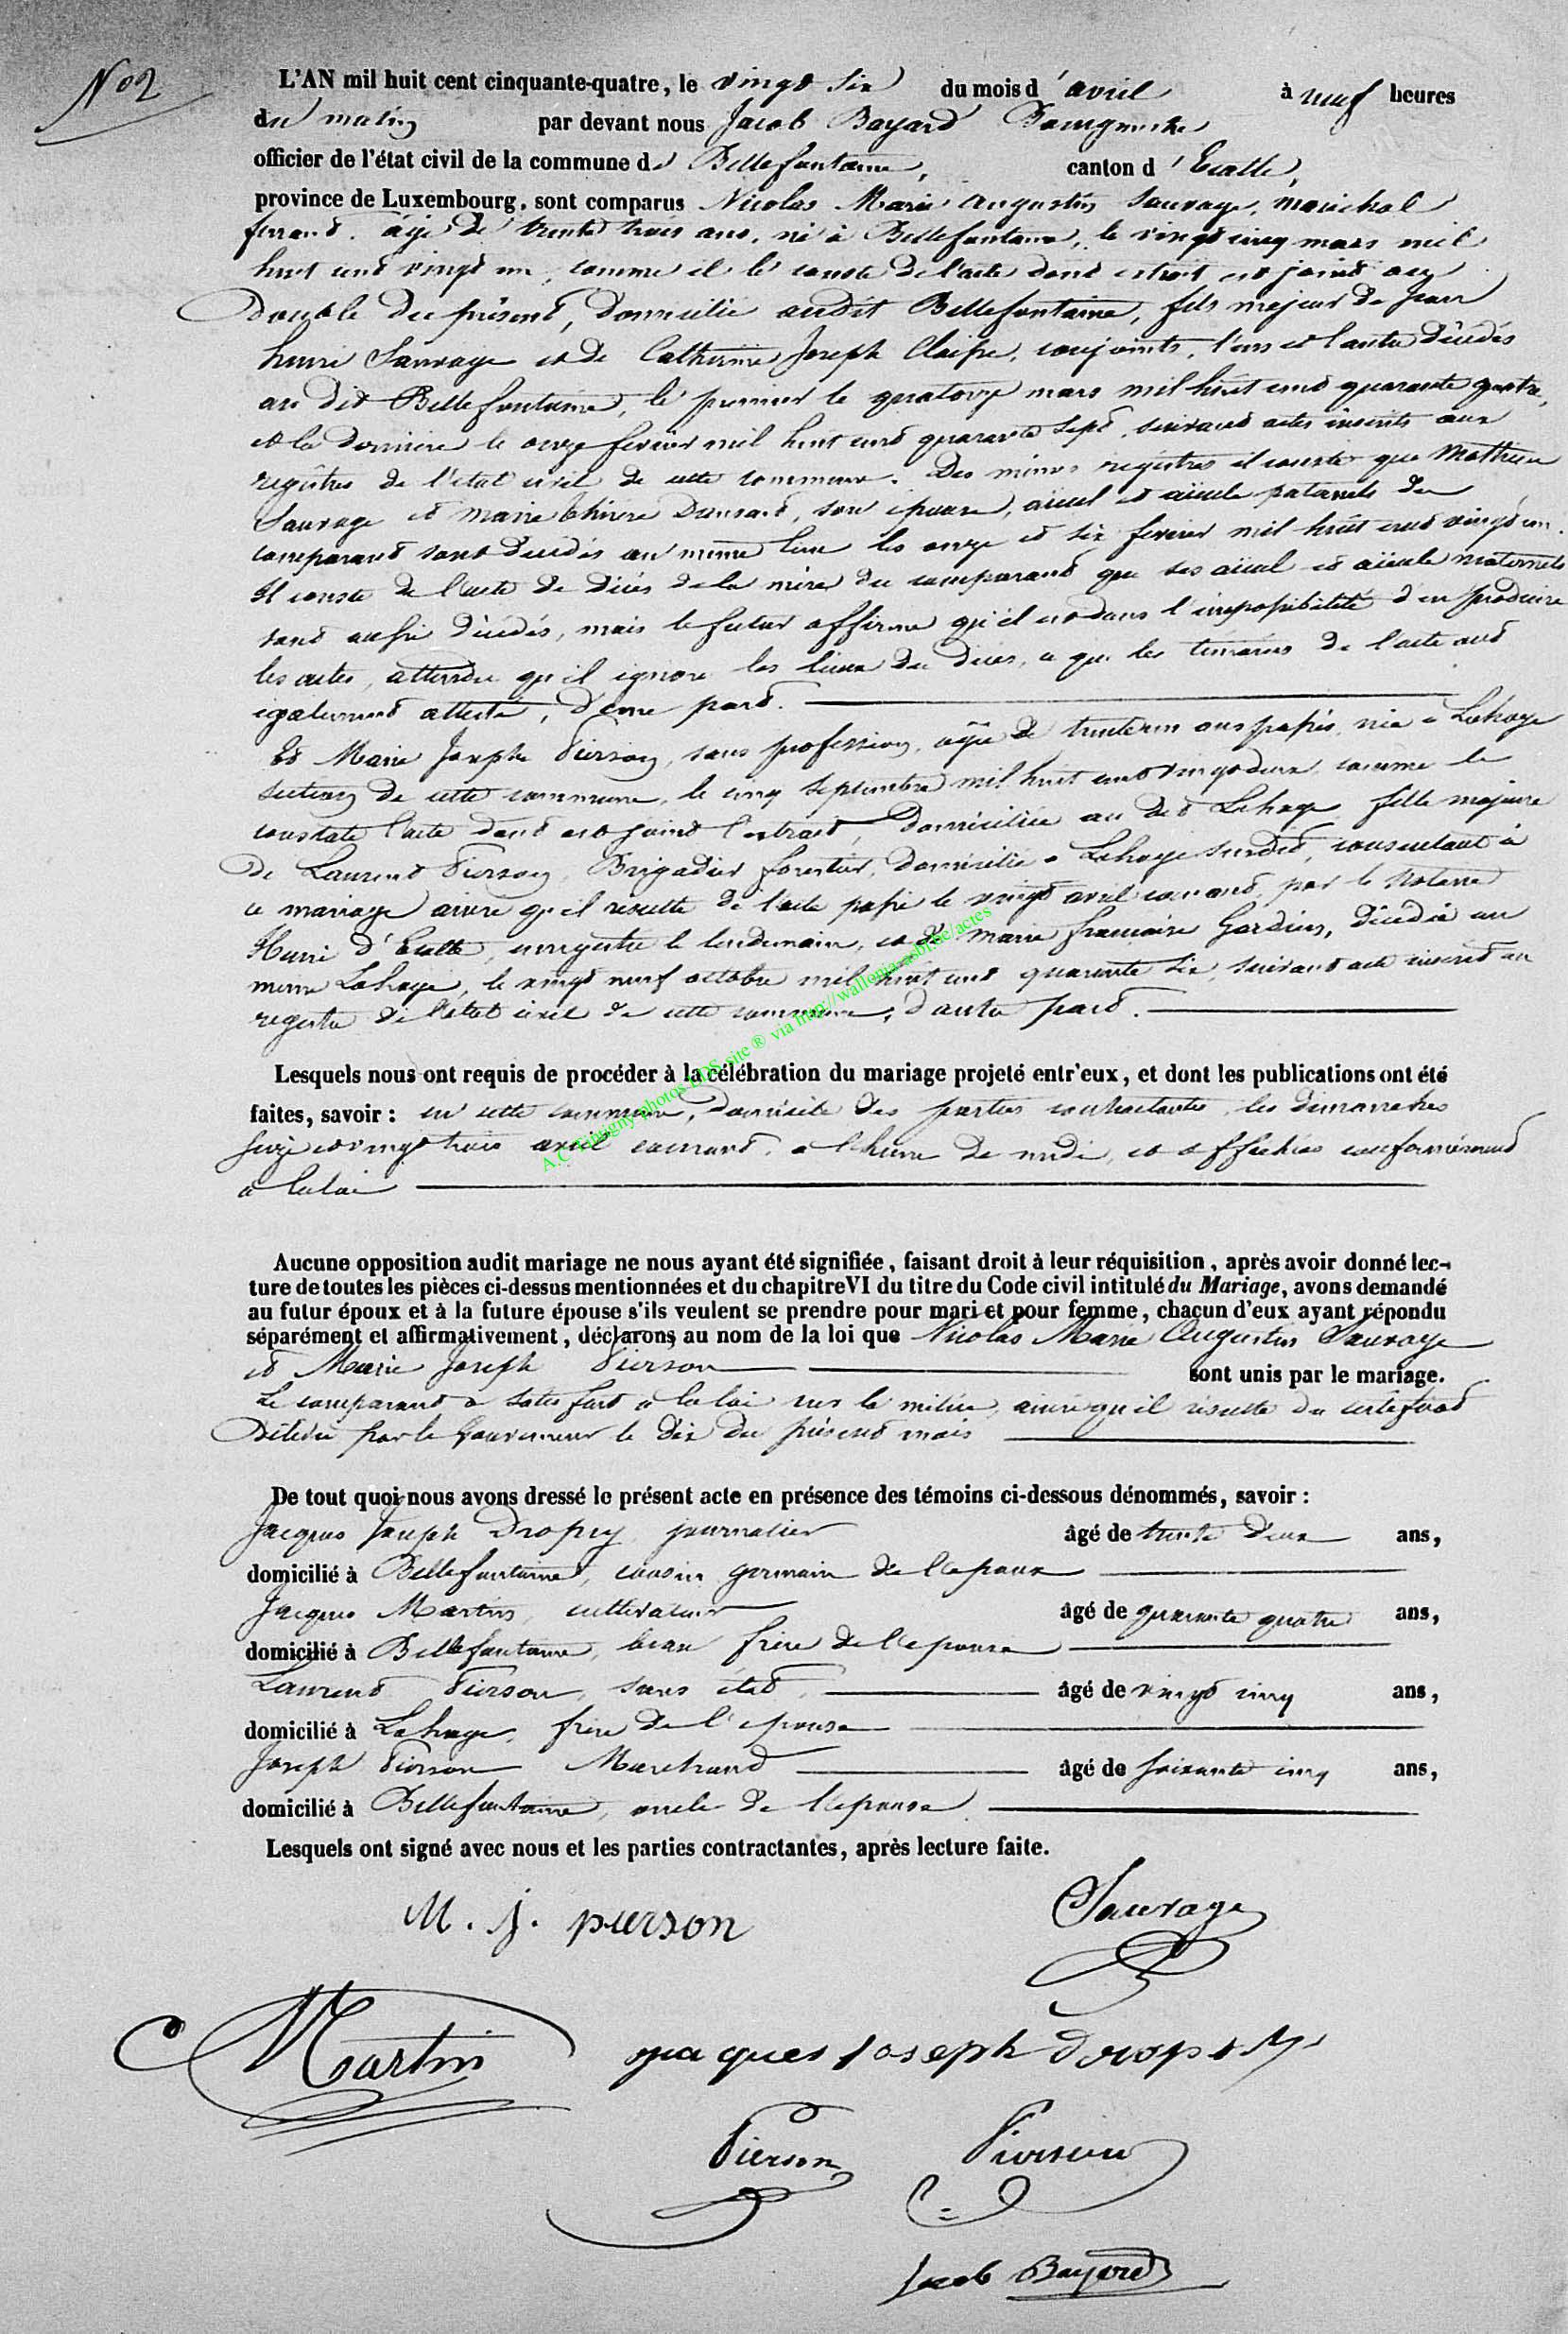 No 2
L'AN mil huit cent cinquante-quatre, le vingt six du mois d'avril à neuf heures
du matin par devant nous Jacob Bayard Bourgmestre
officier de l'état civil de la commune de Bellefontaine, canton d'Etalle,
province de Luxembourg, sont comparus Nicolas Marie Augustin Sauvage, maréchal
ferrant, âgé de trente trois ans, né à Bellefontaine, le vingt cinq mars mil
huit cent vingt un, comme il le conste de l'acte dont extrait est joint au
Double du présent, domicilié audit Bellefontaine, fils majeur de Jean
henri Sauvage et de Catherine Joseph Claisse, conjoints, l'un et l'autre décédés
au dit Bellefontaine, le premier le quatorze mars mil huit cent quarante quatre,
et la dernière le onze fevrier mil huit cent quarante sept, suivant actes inscrits aux
registres de l'état civil de cette commune. Des mêmes registres il conste que Mathieu
Sauvage et Marie thérèse Dansard, son épouse, aïeul et aïeule paternels du
comparant sont décédés au même lieu les onze et six fevrier mil huit cent vingt un.
Il conste de l'acte de décès de la mère du comparant que ses aïeul et aïeule maternels
sont aussi décédés, mais le futur affirme qu'il est dans l'impossibilité d'en produire
les actes, attendu qu'il ignore les lieux du décès, ce que les témoins de l'acte ont
egalement attesté, d'une part.
Et Marie Joseph Pierson, sans profession, agée de trente un ans passés, née à Lahage
section de cette commune, le cinq septembre mil huit cent vingt deux, comme le
constate l'acte dont est joint l'extrait, domiciliée au dit Lahage fille majeure
de Laurent Pierson, Brigadier forestier, domicilié à Lahage susdit, consentant à
ce mariage ainsi qu'il résulte de l'acte passé le vingt avril courant, par le Notaire
Henri d'Etalle, enregistré le lendemain, et de Marie françoise Gardien, décédée au
meme Lahage, le vingt neuf octobre mil huit cent quarante six, suivant acte inscrit au
registre de l'état civil de cette commune, d'autre part.
A.C Tintigny photos BDS site ® via http://wallonia-asbl.be/actes
Lesquels nous ont requis de procéder à la célébration du mariage projeté entr'eux, et dont les publications ont été
faites, savoir : en cette commune, domicile des parties contractantes, les dimanches
seize et vingt trois avril courant, à l'heure de midi, et affichées conformément
à la loi
Aucune opposition audit mariage ne nous ayant été signifiée, faisant droit à leur réquisition, après avoir donné lec-
ture de toutes les pièces ci-dessus mentionnées et du chapitre VI du titre du Code civil intitulé du Mariage, avons demandé
au futur époux et à la future épouse s'ils veulent se prendre pour mari et pour femme, chacun d'eux ayant répondu
séparément et affirmativement, déclarons au nom de la loi que Nicolas Marie Augustin Sauvage
et Marie Joseph Pierson sont unis par le mariage.
Le comparant a satisfait à la loi sur la milice, ainsi qu'il résulte du certificat
Délivré par le Gouverneur le dix du présent mois
De tout quoi nous avons dressé le présent acte en présence des témoins ci-dessous dénommés, savoir :
Jacques Joseph Dropsy journalier âgé de trente deux ans,
domicilié à Bellefontaine, cousin germain de l'epoux
Jacques Martin, cultivateur âgé de quarante quatre ans,
domicilié à Bellefontaine, beau frère de l'epouse
Laurent Pierson, sans état, âgé de vingt cinq ans,
domicilié à Lahage, frère de l'epouse
Joseph Pierson Marchand âgé de soixante cinq ans,
domicilié à Bellefontaine, oncle de l'epouse
Lesquels ont signé avec nous et les parties contractantes, après lecture faite.
M. j. pierson Sauvage
Martin jaques joseph dropsy
Pierson Pierson
Jacob Bayard